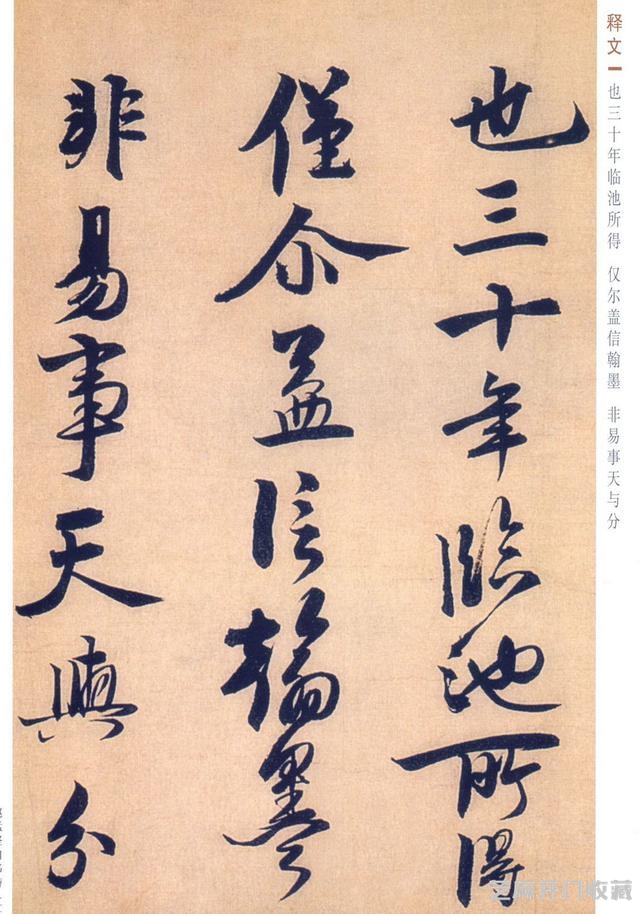 释文
也三十年临池所得 仅尔盖信翰墨 非易事天与分
也三十年臨池所得
僅尒盖信翰墨
非易事天與分